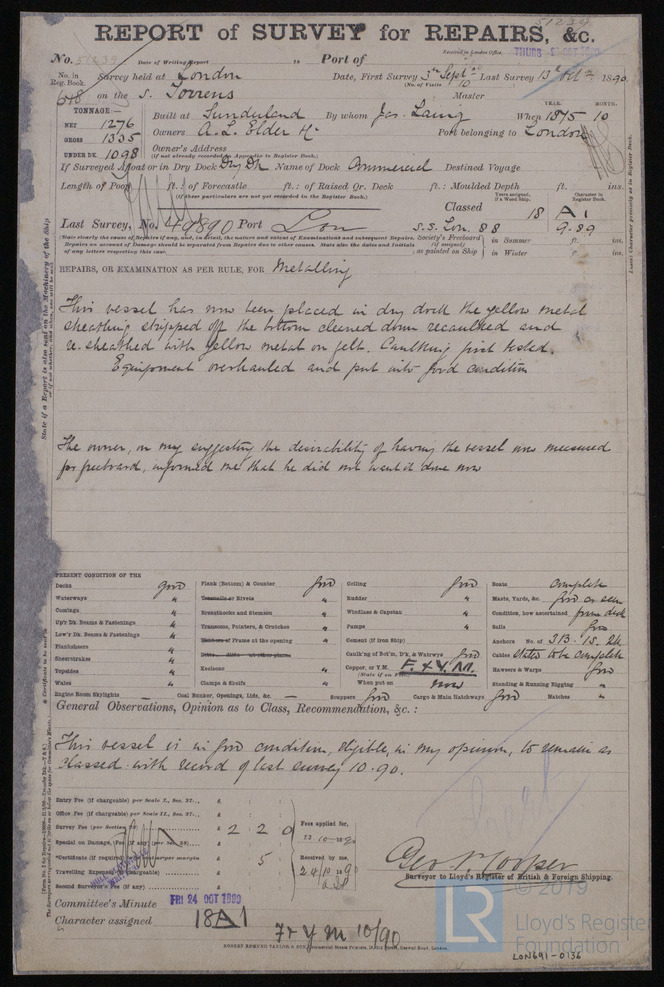 51239
REPORT of SURVEY for REPAIRS, &c.
No. 51239 Date of Writing Report 18 Port of Received in London Office THURS 23 OCT 1890
No. in Reg. Book. Survey held at London Date, First Survey 3rd Sept 90 Last Survey 13th Oct 1890
(No. of Visits 10)
648 on the s. Torrens Master
TONNAGE
Built at Sunderland By whom Jas. Laing When 1875 10
YEAR. MONTH.
NET 1276
GROSS 1335
UNDER DK. 1098
Owners A. L. Elder & Co Port belonging to London
Owner's Address
(If not already recorded on Appendix to Register Book.)
If Surveyed Afloat or in Dry Dock Dry Dk Name of Dock Commercial Destined Voyage
Length of Poop ft.: of Forecastle ft.: of Raised Qr. Deck ft.: Moulded Depth ft. ins.
(If these particulars are not yet recorded in the Register Book.)
Classed 18 A1
Character in Register Book.
Last Survey, No. 49890 Port Lon S.S. Lon. 88 9.89
Society's Freeboard (if assigned) as painted on Ship in Summer ft. ins.
in Winter ins.
REPAIRS, OR EXAMINATION AS PER RULE, FOR Metalling
This vessel has now been placed in dry dock the yellow metal
sheathing stripped off the bottom cleaned down recaulked and
re-sheathed with yellow metal on felt. Caulking first tested.
Equipment overhauled and put into good condition
The owner, on my suggesting the desirability of having the vessel now measured
for freeboard, informed me that he did not want it done now
PRESENT CONDITION OF THE
Decks good
Waterways "
Comings "
Up'r Dk. Beams & Fastenings "
Low'r Dk. Beams & Fastenings "
Planksheers "
Sheerstrakes "
Topsides "
Wales "
Engine Room Skylights —
Plank (Bottom) & Counter good
Treenails or Rivets "
Breasthooks and Stemson "
Transoms, Pointers, & Crutches "
Timbers or Frame at the opening "
Keelsons "
Clamps & Shelfs "
Coal Bunker, Openings, Lids, &c. —
Ceiling good
Rudder "
Windlass & Capstan "
Pumps "
Cement (if Iron Ship)
Caulk'g of Bot'm, D'k, & Watrwys good
Copper, or Y.M. F. & Y.M.
When put on now
Scuppers good Cargo & Main Hatchways good
Boats complete
Masts, Yards, &c. good as seen
Condition, how ascertained from deck
Sails good
Anchors No. of 3B. 1S. 2k
Cables stated to be complete
Hawsers & Warps good
Standing & Running Rigging "
Hatches "
General Observations, Opinion as to Class, Recommendation, &c.:
This vessel is in good condition, eligible, in my opinion, to remain as
classed with record of last survey 10.90.
Entry Fee (if chargeable) per Scale I., Sec. 27. £
Office Fee (if chargeable) per Scale II., Sec. 27. £
Survey Fee (per Section 28) £ 2 2 0
Special on Damage, Fee (if any) (per Sec. 28) £
Certificate (if required) £ 5
Travelling Expenses (if chargeable) £
Second Surveyor's Fee (if any) £
Fees applied for, 23 10 1890
Received by me, 24/10 1890
Geo. R. Cooper
Surveyor to Lloyd's Register of British & Foreign Shipping.
Committee's Minute FRI 24 OCT 1890
Character assigned 18 A1
F & Y M 10/90
© 2019
LR
Lloyd's Register
Foundation
LON691-0136